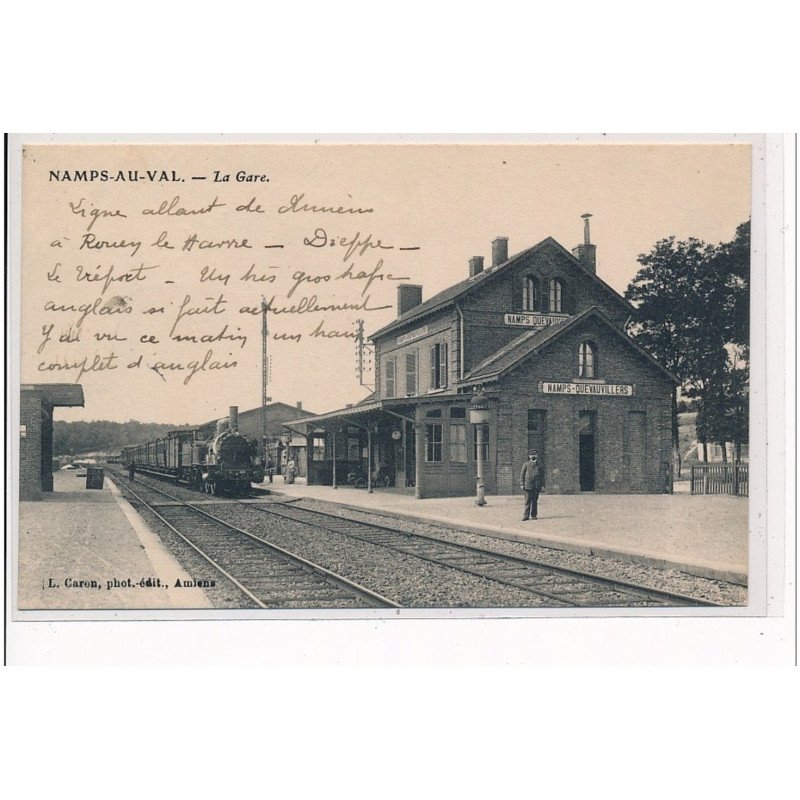 NAMPS-AU-VAL. — La Gare.
Ligne allant de Amiens
à Rouen le Havre — Dieppe —
Le Tréport — Un très gros trafic
anglais si fait actuellement
Y'ai vu ce matin un train
complet d'anglais
NAMPS QUEVAUVILLERS
NAMPS-QUEVAUVILLERS
L. Caron, phot.-édit., Amiens